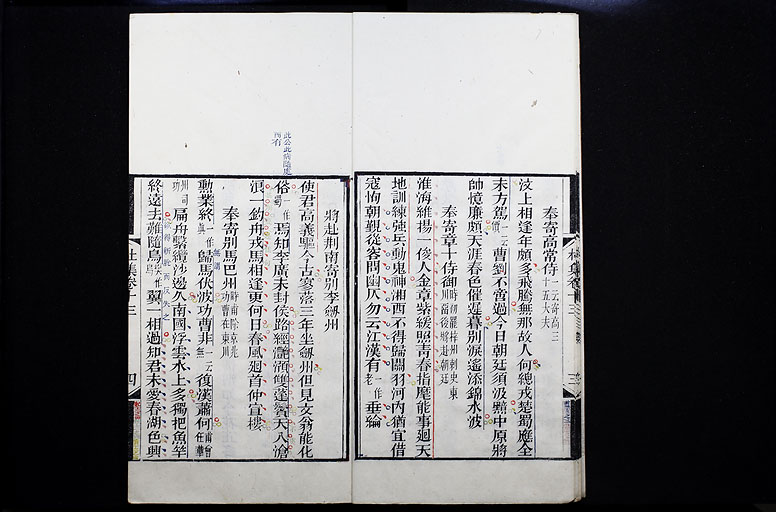 奉寄高常侍一云寄高三十五大夫
汶上相逢年頗多飛騰無那故人何總戎楚蜀應全
未方駕一云曹劉不啻過今日朝廷須汲黯中原將
帥憶廉頗天涯春色催遲暮別淚遙添錦水波
奉寄章十侍御時初罷梓州刺史東川留後將赴朝廷
淮海維揚一俊人金章紫綬照青春指麾能事廻天
地訓練強兵動鬼神湘西不得歸關羽河内猶宜借
寇恂朝覲從容問幽仄勿云江漢有一作老垂綸
將赴荆南寄別李劒州
使君高義驅今古寥落三年坐劒州但見文翁能化
俗一作焉知李廣未封侯路經灧澦雙蓬鬢天入滄
浪一釣舟戎馬相逢更何日春風廻首仲宣樓
奉寄別馬巴州時甫除京兆功曹在東川
勳業終一作歸馬伏波功曹非一云無復漢蕭何甫曾任華
州司功扁舟繫纜沙邊久南國浮雲水上多獨把魚竿
終遠去難隨鳥翼一相過知君未愛春湖色興
杜集卷十三
四
杜集卷十三
三
此公此病隨處
有